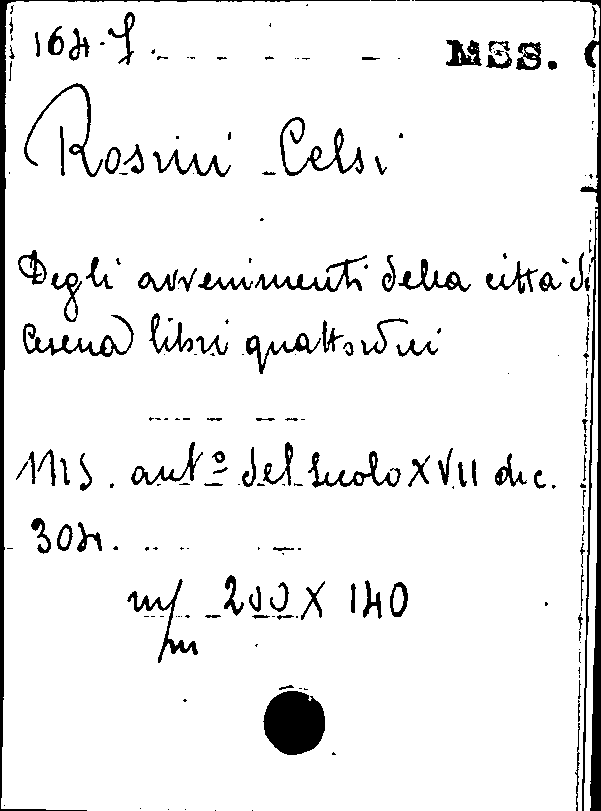 164.7. MSS.
Rosini Celsi
Degli avvenimenti della città di
Cesena libri quattordici
MS. autº del secolo XVII di c.
304.
m/m 200 X 140